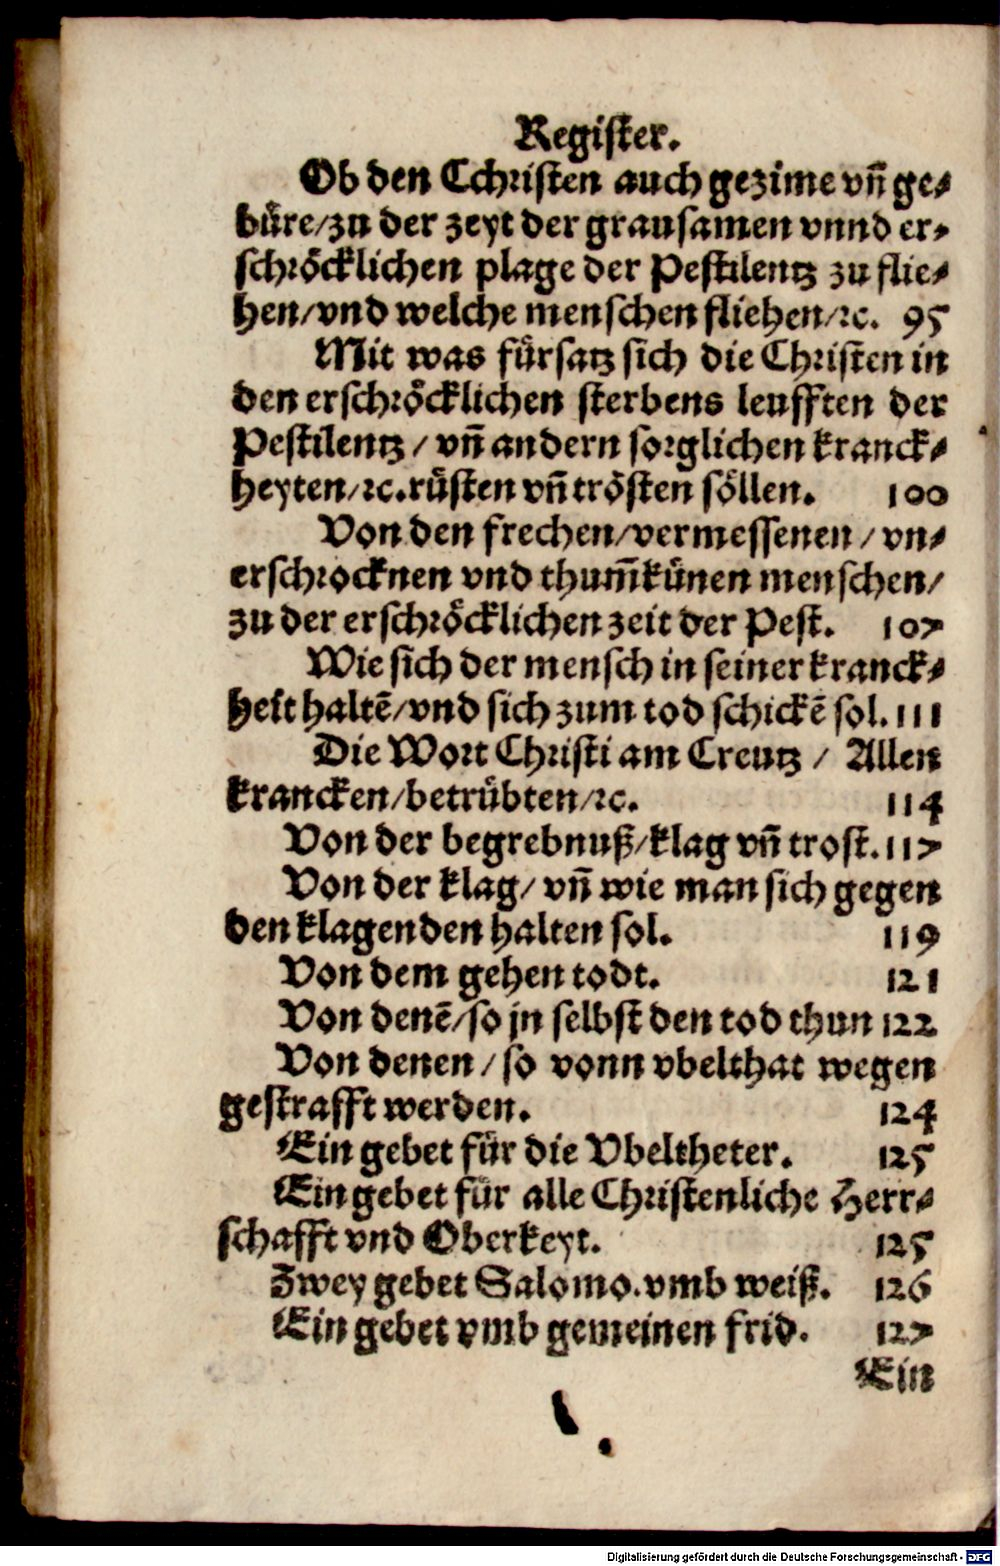 Register.
Ob den Cchristen auch gezime vñ ge⸗
bůre/zu der zeyt der grausamen vnnd er⸗
schröcklichen plage der Pestilentz zu flie⸗
hen/vnd welche menschen fliehen/ꝛc. 95
Mit was fürsatz sich die Christen in
den erschröcklichen sterbens leufften der
Pestilentz / vñ andern sorglichen kranck⸗
heyten/ꝛc.rüsten vñ trösten söllen. 100
Von den frechen/vermessenen / vn⸗
erschrocknen vnd thum̃künen menschen/
zu der erschröcklichen zeit der Pest. 107
Wie sich der mensch in seiner kranck⸗
heit haltẽ/vnd sich zum tod schickẽ sol. 111
Die Wort Christi am Creutz / Allen
krancken/betrübten/ꝛc. 114
Von der begrebnuß/klag vñ trost. 117
Von der klag/ vñ wie man sich gegen
den klagenden halten sol. 119
Von dem gehen todt. 121
Von denẽ/so jn selbst den tod thun 122
Von denen / so vonn vbelthat wegen
gestrafft werden. 124
Ein gebet für die Vbeltheter. 125
Ein gebet für alle Christenliche Herr⸗
schafft vnd Oberkeyt. 125
Zwey gebet Salomo.vmb weiß. 126
Ein gebet vmb gemeinen frid. 127
Ein
Digitalisierung gefördert durch die Deutsche Forschungsgemeinschaft - DFG